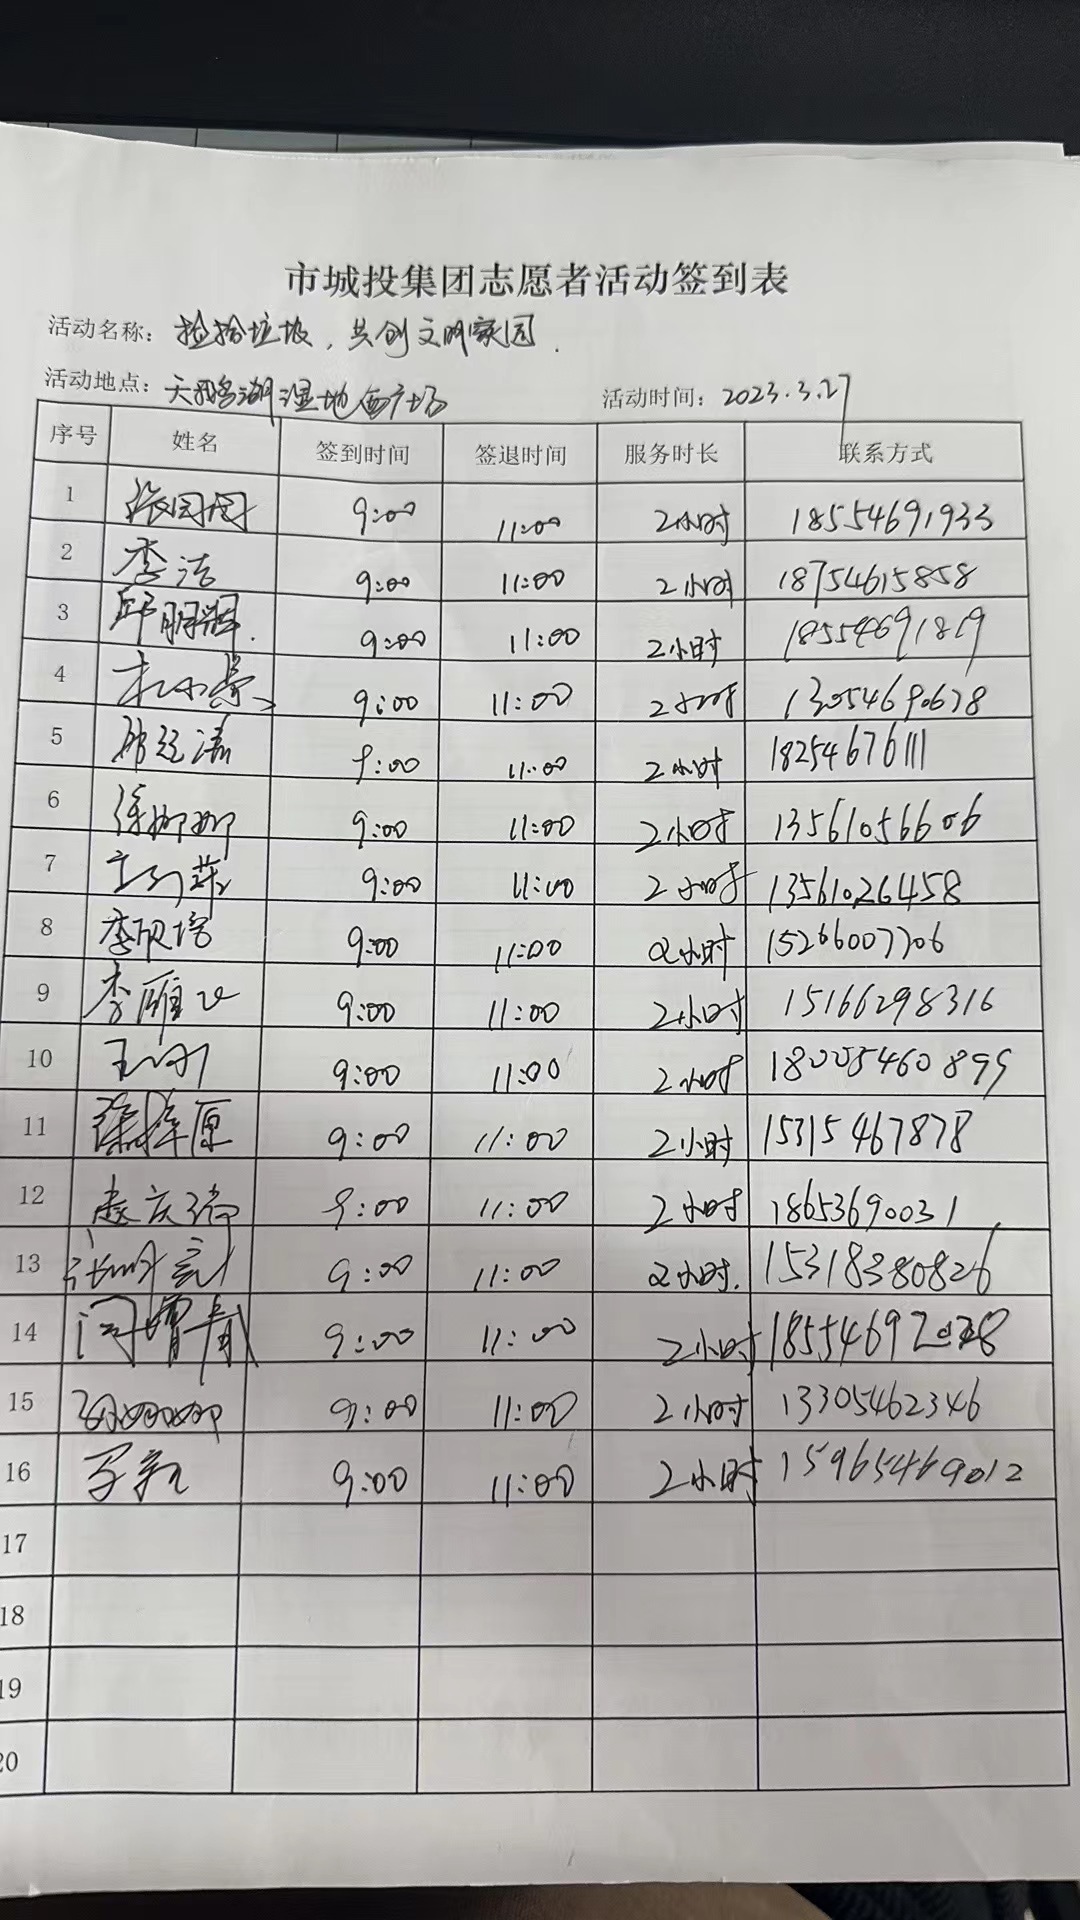 市城投集团志愿者活动签到表
活动名称：捡拾垃圾，共创文明家园.
活动地点：天鹅湖湿地西广场 活动时间：2023.3.27
序号 姓名 签到时间 签退时间 服务时长 联系方式
1 张园园 9:00 11:00 2小时 18554691933
2 李洁 9:00 11:00 2小时 18754615858
3 9:00 11:00 2小时 18554691819
4 9:00 11:00 2小时 13054690678
5 9:00 11:00 2小时 18254676111
6 徐娜娜 9:00 11:00 2小时 13561056606
7 9:00 11:00 2小时 13561026458
8 李欣培 9:00 11:00 2小时 15266007706
9 李雁飞 9:00 11:00 2小时 15166298316
10 9:00 11:00 2小时 18005460899
11 9:00 11:00 2小时 15315467878
12 9:00 11:00 2小时 18653690031
13 9:00 11:00 2小时. 15318380826
14 9:00 11:00 2小时
15 9:00 11:00 2小时 13305462346
16 9:00 11:00 2小时 15965469012
17
18
19
20